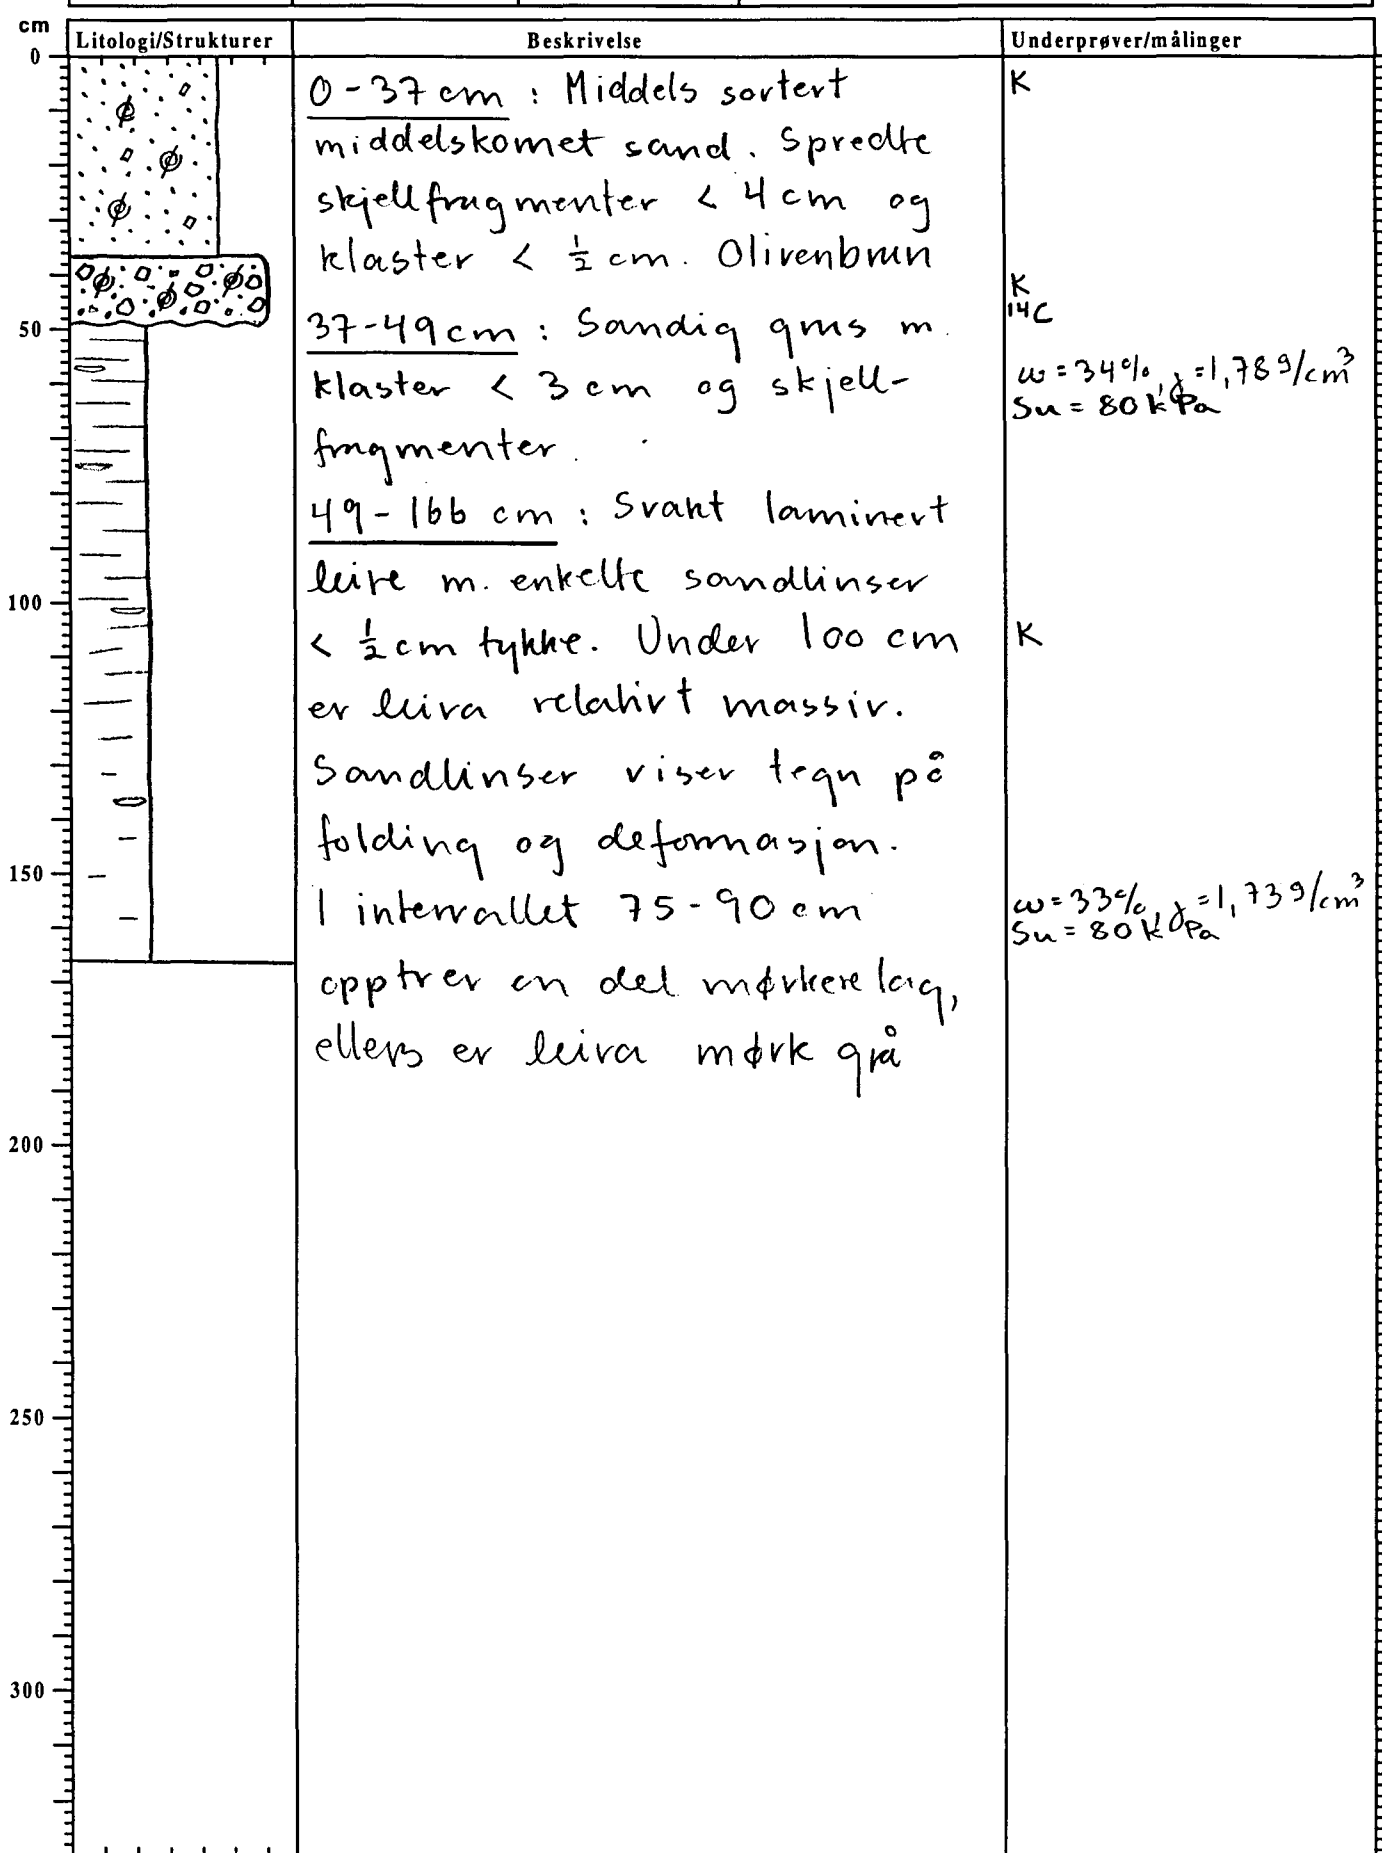 cm
Litologi/Strukturer
Beskrivelse
Underprøver/målinger
0
0-37 cm : Middels sortert
middelskornet sand. Spredte
skjellfragmenter < 4 cm og
klaster < ½ cm. Olivenbrun
37-49 cm : Sandig grus m.
klaster < 3 cm og skjell-
fragmenter.
49-166 cm : Svakt laminert
leire m. enkelte sandlinser
< ½ cm tykke. Under 100 cm
er leira relativt massiv.
Sandlinser viser tegn på
folding og deformasjon.
I intervallet 75-90 cm
opptrer en del mørkere lag,
ellers er leira mørk grå
K
K
14C
w = 34%, γ = 1,78 g/cm³
Su = 80 kPa
K
w = 33%, γ = 1,73 g/cm³
Su = 80 kPa
50
100
150
200
250
300